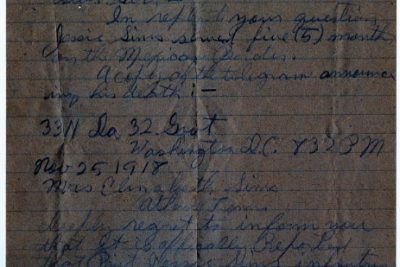 In reply to your question,
Jessie Sims served five (5) month
on the Mexican Border.
A copy of the telegram announc
ing his death: —
3311 Da. 32. Govt
Washington D.C. 832 PM
Nov 25 1918
Mrs Elizabeth Sims
deeply regret to inform you
that it is officially Reported
that Jessie Sims infantry